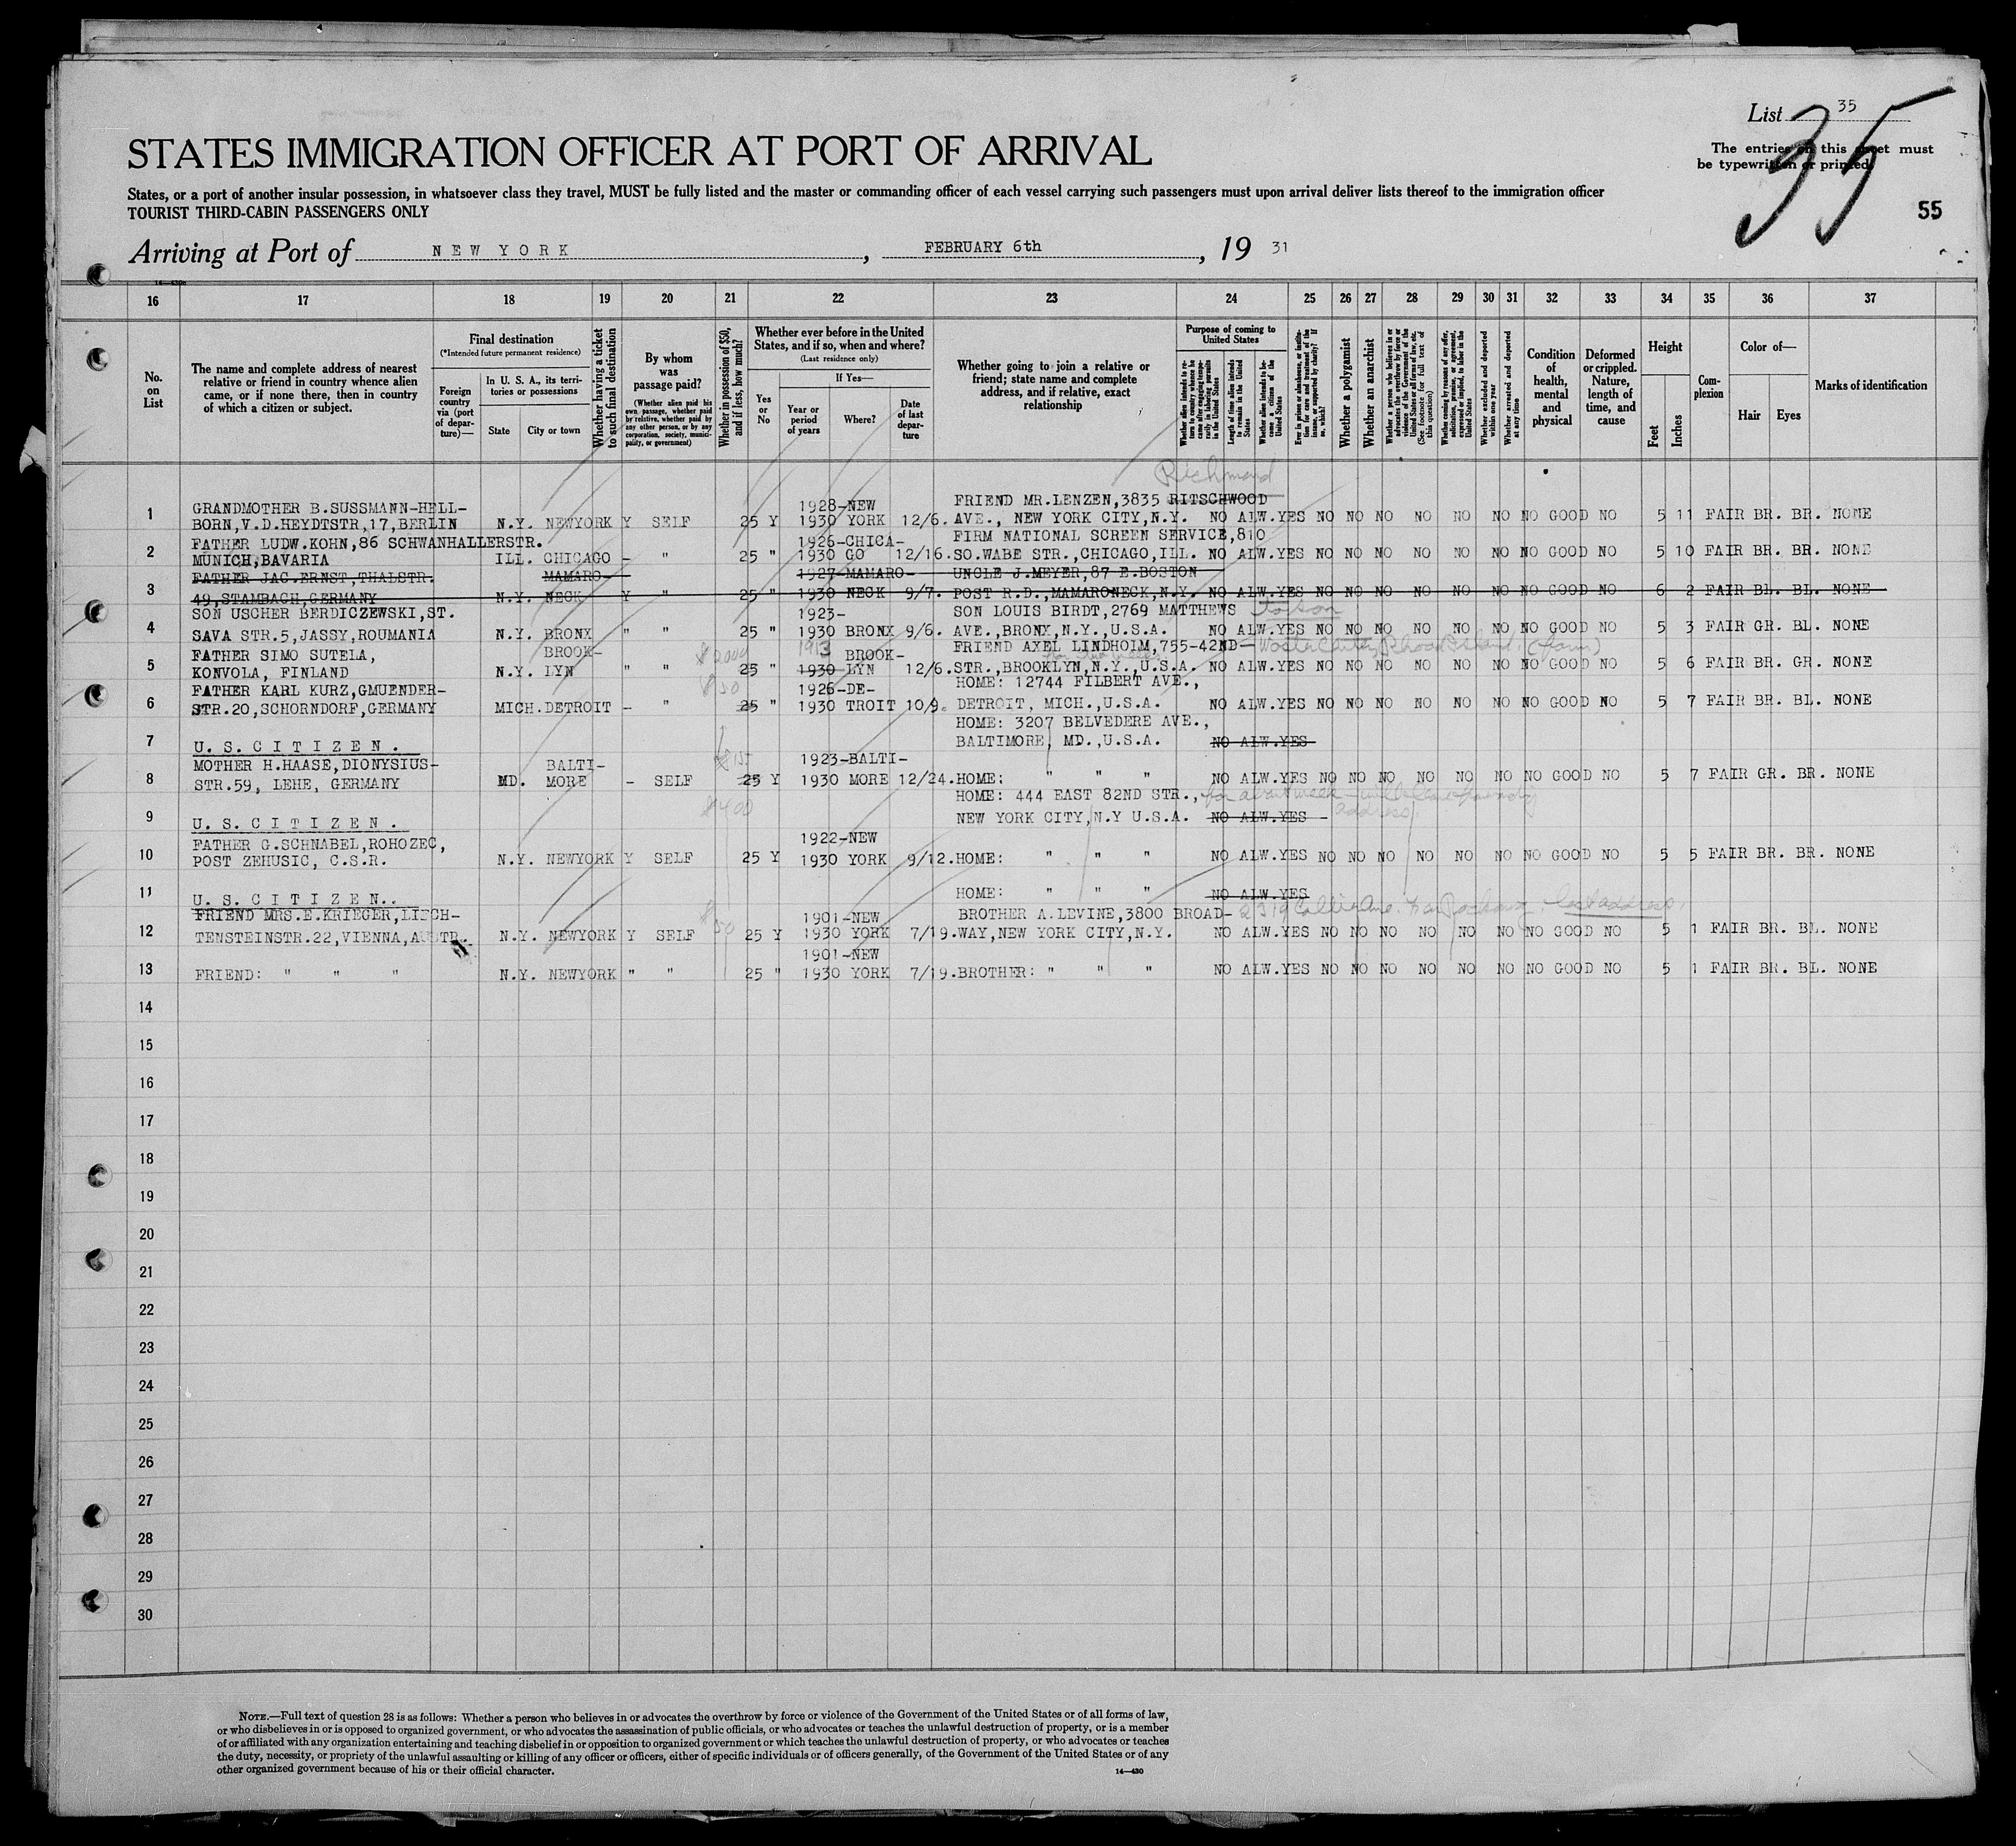 List 35
35
The entries on this sheet must
be typewritten or printed
STATES IMMIGRATION OFFICER AT PORT OF ARRIVAL
States, or a port of another insular possession, in whatsoever class they travel, MUST be fully listed and the master or commanding officer of each vessel carrying such passengers must upon arrival deliver lists thereof to the immigration officer
TOURIST THIRD-CABIN PASSENGERS ONLY
55
Arriving at Port of NEW YORK, FEBRUARY 6th, 19 31
16 17 18 19 20 21 22 23 24 25 26 27 28 29 30 31 32 33 34 35 36 37
No. on List
The name and complete address of nearest
relative or friend in country whence alien
came, or if none there, then in country
of which a citizen or subject.
Final destination
(*Intended future permanent residence)
Foreign country via (port of departure)—
In U. S. A., its territories or possessions
State
City or town
Whether having a ticket to such final destination
By whom was passage paid?
(Whether alien paid his own passage, whether paid by relative, whether paid by any other person, or by any corporation, society, municipality, or government)
Whether in possession of $50, and if less, how much?
Whether ever before in the United States, and if so, when and where?
(Last residence only)
Yes or No
If Yes—
Year or period of years
Where?
Date of last departure
Whether going to join a relative or
friend; state name and complete
address, and if relative, exact
relationship
Purpose of coming to United States
Whether alien intends to return to country whence he came after engaging temporarily in laboring pursuits in the United States
Length of time alien intends to remain in the United States
Whether alien intends to become a citizen of the United States
Ever in prison or almshouse, or institution for care and treatment of the insane, or supported by charity? If so, which?
Whether a polygamist
Whether an anarchist
Whether a person who believes in or advocates the overthrow by force or violence of the Government of the United States or all forms of law, etc. (See footnote for full text of this question)
Whether coming by reasons of any offer, solicitation, promise, or agreement, expressed or implied, to labor in the United States
Whether excluded and deported within one year
Whether arrested and deported at any time
Condition of health, mental and physical
Deformed or crippled. Nature, length of time, and cause
Height
Feet
Inches
Complexion
Color of—
Hair
Eyes
Marks of identification
Richmond
GRANDMOTHER B.SUSSMANN-HELL- 1928-NEW FRIEND MR.LENZEN,3835 RITSCHWOOD
1 BORN,V.D.HEYDTSTR,17,BERLIN N.Y. NEWYORK Y SELF 25 Y 1930 YORK 12/6. AVE., NEW YORK CITY,N.Y. NO ALW.YES NO NO NO NO NO NO NO GOOD NO 5 11 FAIR BR. BR. NONE
FATHER LUDW.KOHN,86 SCHWANHALLERSTR. 1926-CHICA- FIRM NATIONAL SCREEN SERVICE,810
2 MUNICH,BAVARIA ILL. CHICAGO - " 25 " 1930 GO 12/16. SO.WABE STR.,CHICAGO,ILL. NO ALW.YES NO NO NO NO NO NO NO GOOD NO 5 10 FAIR BR. BR. NONE
FATHER JAC.ERNST,THALSTR. MAMARO- 1927-MAMARO- UNCLE J.MEYER,87 E.BOSTON
3 49,STAMBACH,GERMANY N.Y. NECK Y " 25 " 1930 NECK 9/7. POST R.D.,MAMARONECK,N.Y. NO ALW.YES NO NO NO NO NO NO NO GOOD NO 6 2 FAIR BL. BL. NONE
SON USCHER BERDICZEWSKI,ST. 1923- SON LOUIS BIRDT,2769 MATTHEWS to son
4 SAVA STR.5,JASSY,ROUMANIA N.Y. BRONX " " 25 " 1930 BRONX 9/6. AVE.,BRONX,N.Y.,U.S.A. NO ALW.YES NO NO NO NO NO NO NO GOOD NO 5 3 FAIR GR. BL. NONE
FATHER SIMO SUTELA, BROOK- $2000 1913 BROOK- FRIEND AXEL LINDHOIM,755-42ND- Rhode Island. (farm)
5 KONVOLA, FINLAND N.Y. LYN " " 25 " 1930 LYN 12/6. STR.,BROOKLYN,N.Y.,U.S.A. NO ALW.YES NO NO NO NO NO NO NO GOOD NO 5 6 FAIR BR. GR. NONE
FATHER KARL KURZ,GMUENDER- $50 1926-DE- HOME: 12744 FILBERT AVE.,
6 STR.20,SCHORNDORF,GERMANY MICH. DETROIT - " 25 " 1930 TROIT 10/9. DETROIT, MICH.,U.S.A. NO ALW.YES NO NO NO NO NO NO NO GOOD NO 5 7 FAIR BR. BL. NONE
HOME: 3207 BELVEDERE AVE.,
7 U.S.CITIZEN. BALTIMORE, MD.,U.S.A. NO ALW.YES
MOTHER H.HAASE,DIONYSIUS- BALTI- 1923-BALTI-
8 STR.59, LEHE, GERMANY MD. MORE - SELF 25 Y 1930 MORE 12/24. HOME: " " " NO ALW.YES NO NO NO NO NO NO NO GOOD NO 5 7 FAIR GR. BR. NONE
$400 HOME: 444 EAST 82ND STR., for about week - will
9 U.S.CITIZEN. NEW YORK CITY,N.Y U.S.A. NO ALW.YES - address
FATHER G.SCHNABEL,ROHOZEC, 1922-NEW
10 POST ZEHUSIC, C.S.R. N.Y. NEWYORK Y SELF 25 Y 1930 YORK 9/12. HOME: " " " NO ALW.YES NO NO NO NO NO NO NO GOOD NO 5 5 FAIR BR. BR. NONE
11 U.S.CITIZEN.. HOME: " " " NO ALW.YES
FRIEND MRS.E.KRIEGER,LIECH- $50 1901-NEW BROTHER A.LEVINE,3800 BROAD- Ave. Far Rockaway - last address.
12 TENSTEINSTR.22,VIENNA,AUSTR. N.Y. NEWYORK Y SELF 25 Y 1930 YORK 7/19. WAY,NEW YORK CITY,N.Y. NO ALW.YES NO NO NO NO NO NO NO GOOD NO 5 1 FAIR BR. BL. NONE
1901-NEW
13 FRIEND: " " " N.Y. NEWYORK " " 25 " 1930 YORK 7/19. BROTHER: " " " NO ALW.YES NO NO NO NO NO NO NO GOOD NO 5 1 FAIR BR. BL. NONE
14
15
16
17
18
19
20
21
22
23
24
25
26
27
28
29
30
NOTE.—Full text of question 28 is as follows: Whether a person who believes in or advocates the overthrow by force or violence of the Government of the United States or of all forms of law,
or who disbelieves in or is opposed to organized government, or who advocates the assassination of public officials, or who advocates or teaches the unlawful destruction of property, or is a member
of or affiliated with any organization entertaining and teaching disbelief in or opposition to organized government or which teaches the unlawful destruction of property, or who advocates or teaches
the duty, necessity, or propriety of the unlawful assaulting or killing of any officer or officers, either of specific individuals or of officers generally, of the Government of the United States or of any
other organized government because of his or their official character. 14—430